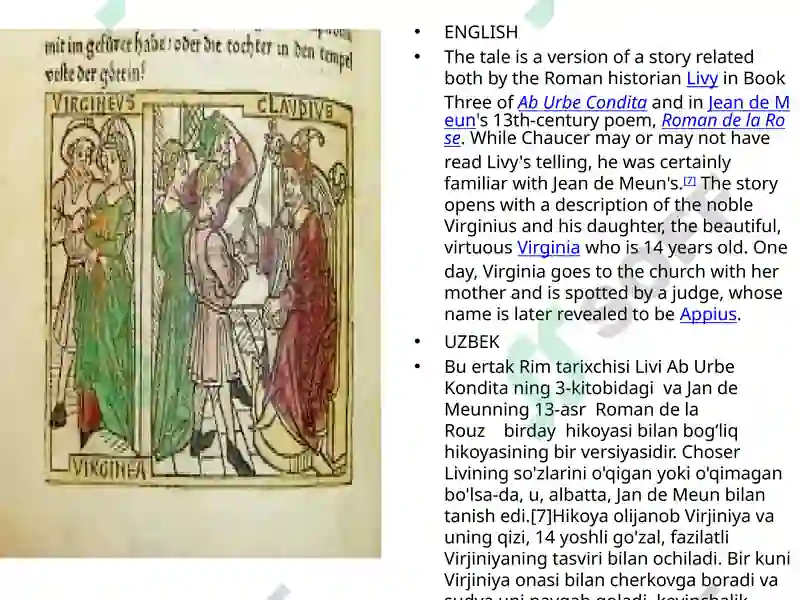 mit im gefüret habe: oder die tochter in den tempel
veste der göttin!
VIRGINEVS
CLAVDIVS
VIRGINEA
• ENGLISH
• The tale is a version of a story related
both by the Roman historian Livy in Book
Three of Ab Urbe Condita and in Jean de M
eun's 13th-century poem, Roman de la Ro
se. While Chaucer may or may not have
read Livy's telling, he was certainly
familiar with Jean de Meun's.[7] The story
opens with a description of the noble
Virginius and his daughter, the beautiful,
virtuous Virginia who is 14 years old. One
day, Virginia goes to the church with her
mother and is spotted by a judge, whose
name is later revealed to be Appius.
• UZBEK
• Bu ertak Rim tarixchisi Livi Ab Urbe
Kondita ning 3-kitobidagi va Jan de
Meunning 13-asr Roman de la
Rouz birday hikoyasi bilan bogʻliq
hikoyasining bir versiyasidir. Choser
Livining so'zlarini o'qigan yoki o'qimagan
bo'lsa-da, u, albatta, Jan de Meun bilan
tanish edi.[7]Hikoya olijanob Virjiniya va
uning qizi, 14 yoshli go'zal, fazilatli
Virjiniyaning tasviri bilan ochiladi. Bir kuni
Virjiniya onasi bilan cherkovga boradi va